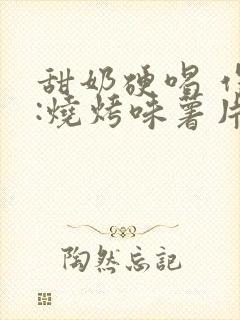 甜奶硬唱
:燒烤味薯片
陶然忘記